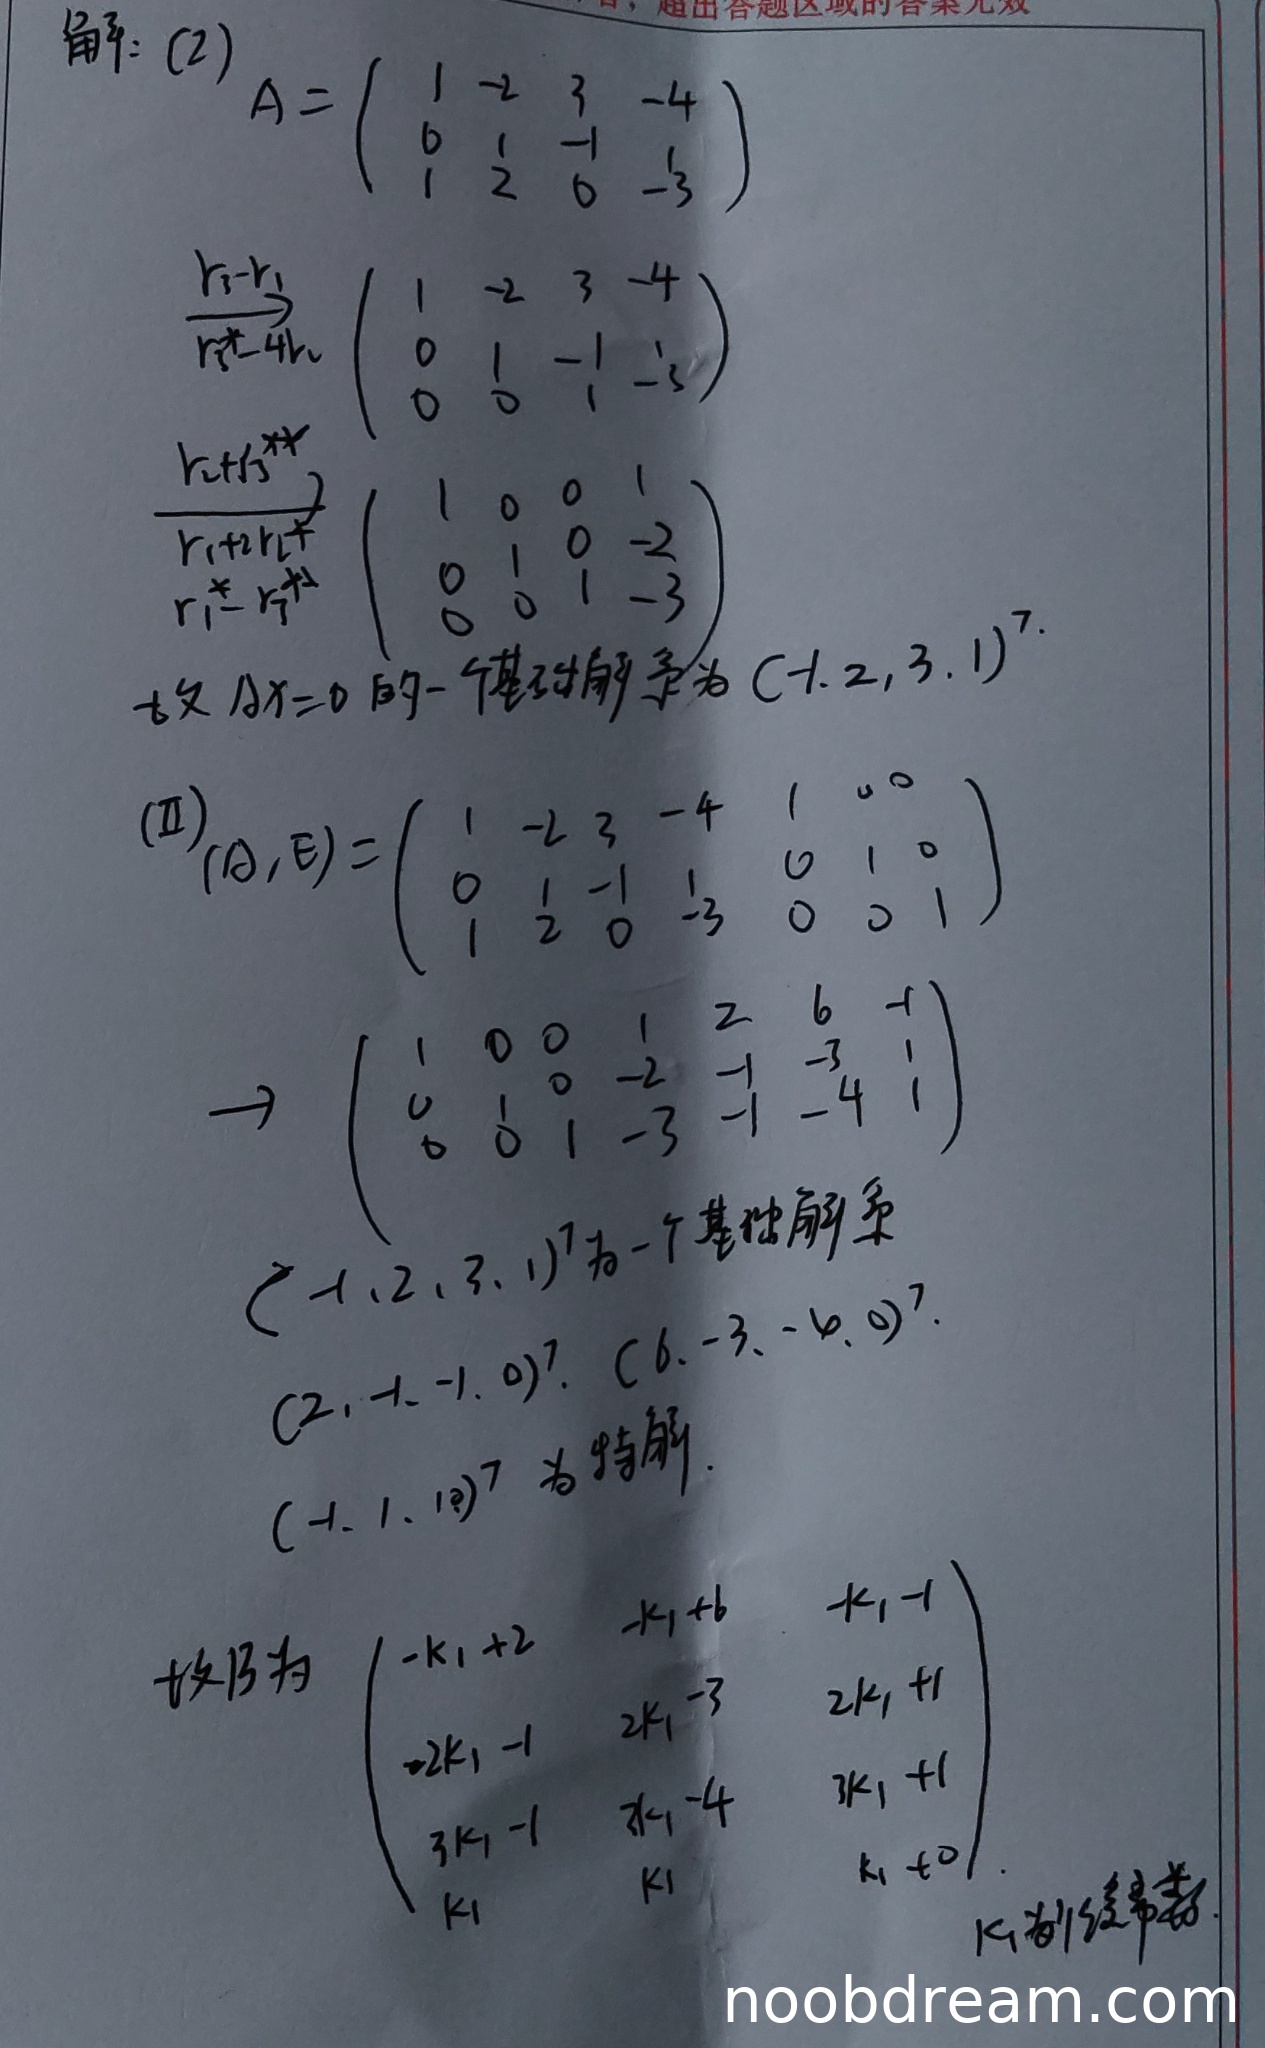 超出答题区域的答案无效
解: (2)
A = ( 1 -2 3 -4
0 1 -1 1
1 2 0 -3 )
r₃-r₁
r₃*-4r₂
( 1 -2 3 -4
0 1 -1 1
0 0 1 -3 )
r₂+r₃**
r₁+2r₂*
r₁*-r₃**
( 1 0 0 1
0 1 0 -2
0 0 1 -3 )
故 Ax=0 的一个基础解系为 (-1.2,3.1)ᵀ.
(Ⅱ)
(A,E) = ( 1 -2 3 -4 1 0 0
0 1 -1 1 0 1 0
1 2 0 -3 0 0 1 )
→ ( 1 0 0 1 2 6 -1
0 1 0 -2 -1 -3 1
0 0 1 -3 -1 -4 1 )
(-1,2,3,1)ᵀ为一个基础解系
(2,-1,-1,0)ᵀ. (6,-3,-4,0)ᵀ.
(-1,1,1,0)ᵀ 为特解.
故B为 ( -k₁+2 -k₁+6 -k₁-1
2k₁-1 2k₁-3 2k₁+1
3k₁-1 3k₁-4 3k₁+1
k₁ k₁ k₁+0 ).
k₁为任意常数.
noobdream.com